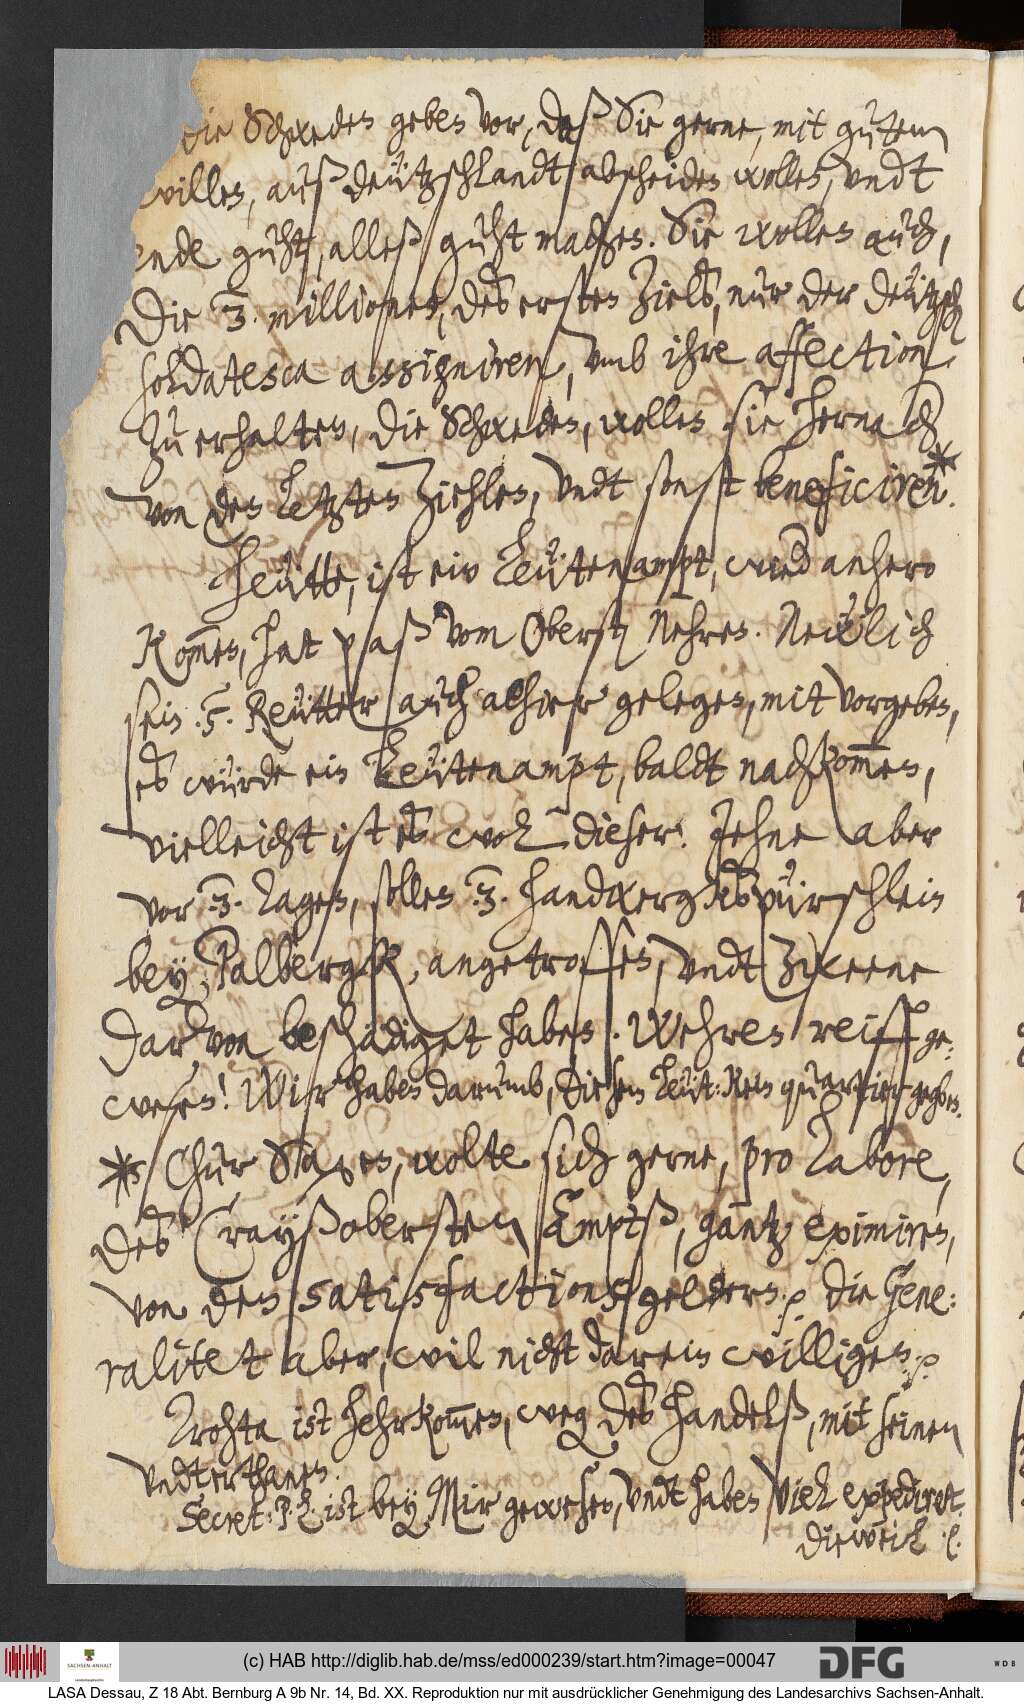 die Schweden geben vor, daß Sie gerne, mit gutem
willen, auß deützschlandt abscheiden wollen, vndt
ende guht, alleß guht machen. Sie wollen auch,
Die 3. millionen, des ersten Ziels, nur der deützsch
soldatesca assigniren, vmb ihre affection
zu erhalten, die Schweden, wollen sie hernach
von den letzten Ziehlen, vndt sonst beneficiren.*
Heütte, ist ein Leütenampt, wied anhero
kom̅en, hat paß vom Oberst Nehren. Neẅlich
sein .5. Reütter auch alhier gelegen, mit vorgeben,
es würde ein Leütenampt, baldt nachkom̅en,
vielleicht ist es wol dieser. Zehne aber
vor .3. tagen, sollen .3. handwergkspürschlein
bey Palbergk, angetroffen, vndt Zweene
darvon beschädiget haben. Wehren reiff ge-
wesen! Wir haben darumb, diesem Leüt: kein quartier gegeben.
* Chur Saxen, wolte sich gerne, pro labore,
des Crayßobersten Ampts, gantz eximiren,
von den satisfactionsgeldern. Die Gene:
ralitet aber, wil nicht darein willigen.
Trohta ist hehrkom̅en, weg. des handelß, mit seinen
vndterthanen.
Secret: P. L. ist bey Mir gewesen, vndt haben viel expediret.
dieweil
(c) HAB http://diglib.hab.de/mss/ed000239/start.htm?image=00047
SACHSEN-ANHALT
DFG
WDB
LASA Dessau, Z 18 Abt. Bernburg A 9b Nr. 14, Bd. XX. Reproduktion nur mit ausdrücklicher Genehmigung des Landesarchivs Sachsen-Anhalt.